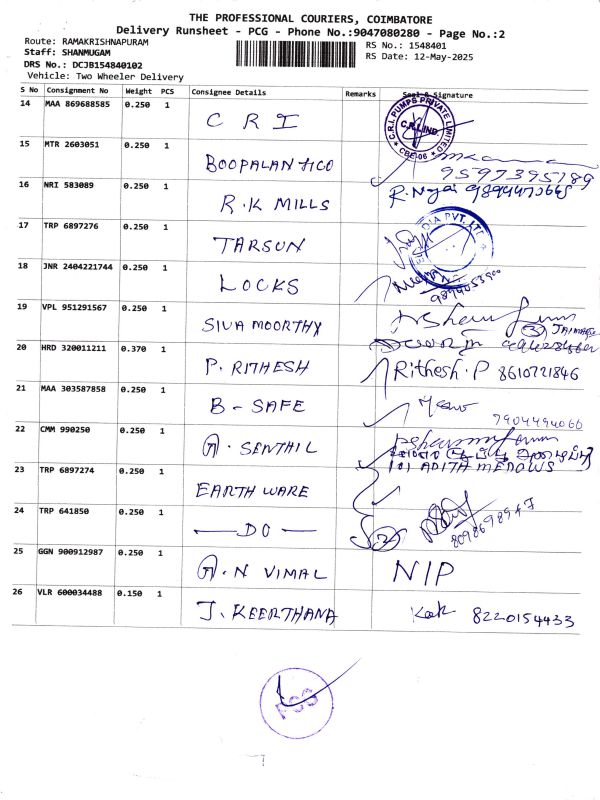 THE PROFESSIONAL COURIERS, COIMBATORE
Delivery Runsheet - PCG - Phone No.:9047080280 - Page No.:2
Route: RAMAKRISHNAPURAM
RS No.: 1548401
Staff: SHANMUGAM
RS Date: 12-May-2025
DRS No.: DCJB154840102
Vehicle: Two Wheeler Delivery
S No Consignment No Weight PCS Consignee Details Remarks Seal & Signature
14 MAA 869688585 0.250 1 C R I
C.R.I. PUMPS PRIVATE LIMITED
C.R.I. IND.
CBE-06
15 MTR 2603051 0.250 1 BOOPALAN
9597395789
16 NRI 583089 0.250 1 R.K MILLS
17 TRP 6897276 0.250 1 TARSUN
DIA PVT. LT
18 JNR 2404221744 0.250 1 LOCKS
19 VPL 951291567 0.250 1 SIVA MOORTHY
20 HRD 320011211 0.370 1 P. RITHESH Rithesh.P 8610721846
21 MAA 303587858 0.250 1 B-SAFE
7904494066
22 CMM 990250 0.250 1 A. SENTHIL
101 ADITA MEDOWS
23 TRP 6897274 0.250 1 EARTH WARE
24 TRP 641850 0.250 1 — DO — 2
25 GGN 900912987 0.250 1 A.N VIMAL NIP
26 VLR 600034488 0.150 1 J. KEERTHANA 8220154433
PCG